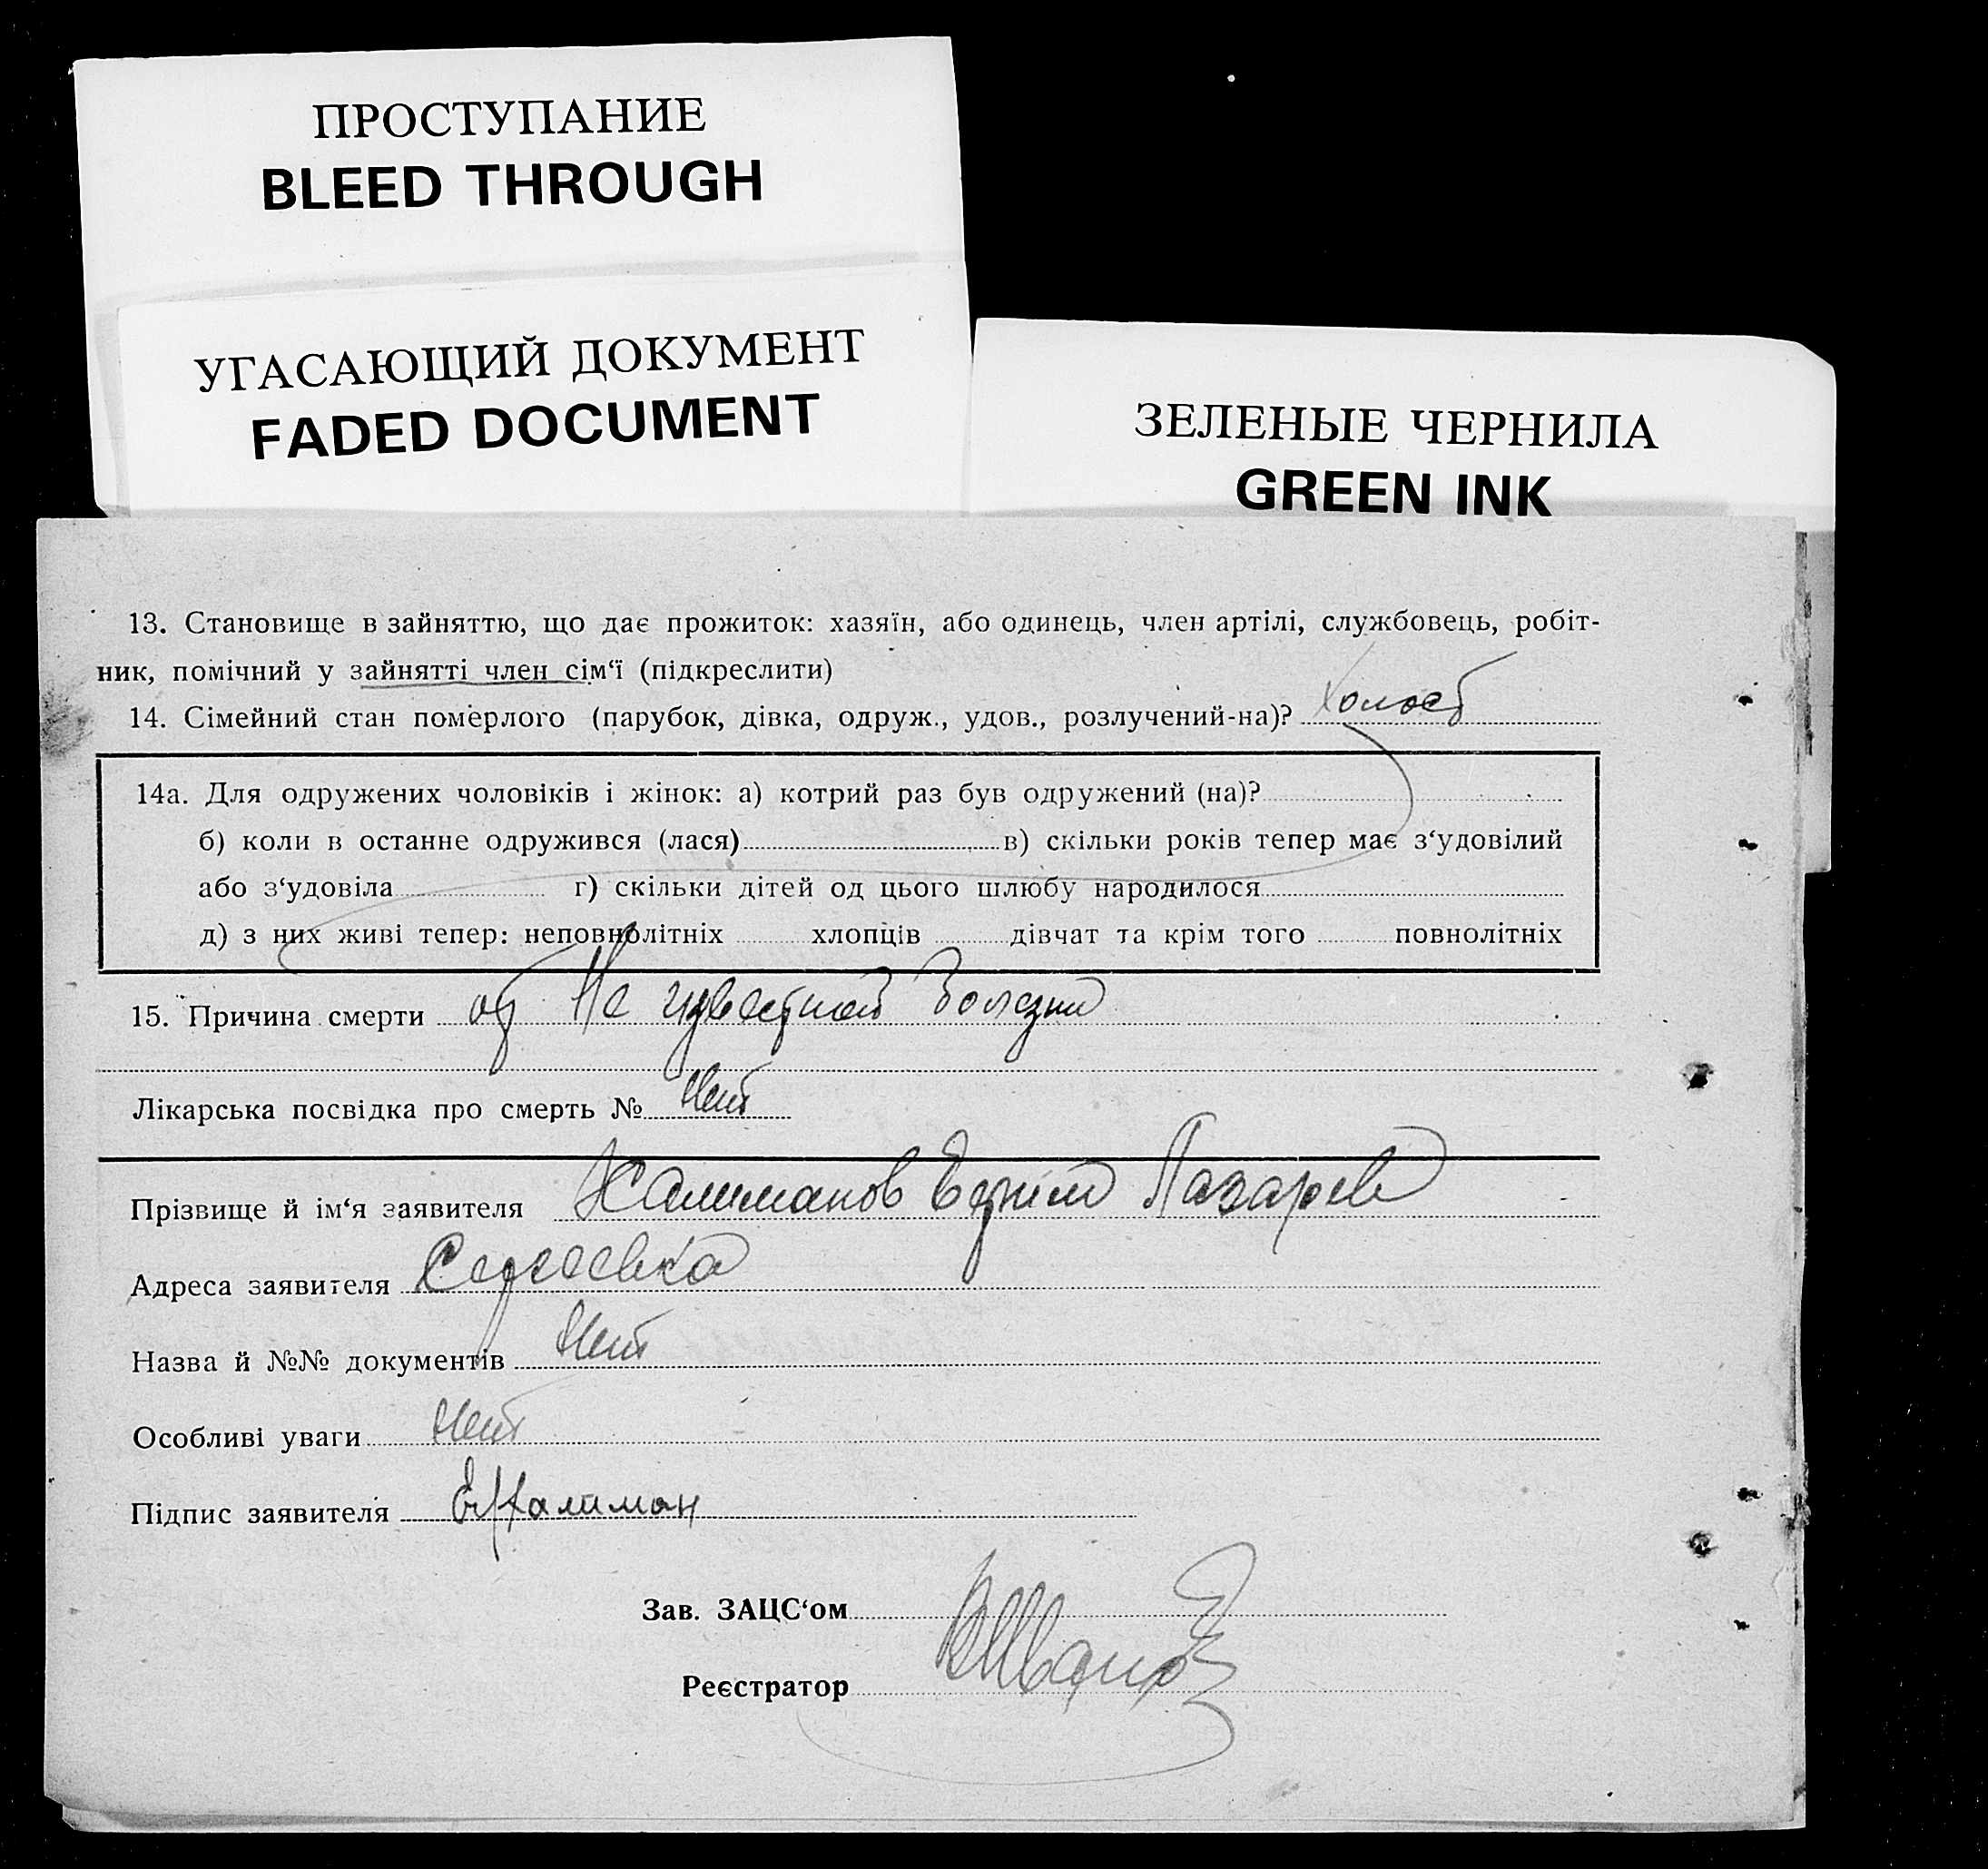 ПРОСТУПАНИЕ
BLEED THROUGH
УГАСАЮЩИЙ ДОКУМЕНТ
FADED DOCUMENT
ЗЕЛЕНЫЕ ЧЕРНИЛА
GREEN INK
13. Становище в зайняттю, що дає прожиток: хазяїн, або одинець, член артілі, службовець, робіт-
ник, помічний у зайнятті член сім‘ї (підкреслити)
14. Сімейний стан померлого (парубок, дівка, одруж., удов., розлучений-на)? Холост
14а. Для одружених чоловіків і жінок: а) котрий раз був одружений (на)?
б) коли в останне одружився (лася) в) скільки років тепер має з‘удовілий
або з‘удовіла г) скільки дітей од цього шлюбу народилося
д) з них живі тепер: неповнолітніх хлопців дівчат та крім того повнолітніх
15. Причина смерти от Не известной болезни
Лікарська посвідка про смерть № Нет
Прізвище й ім‘я заявителя Халиманов Лазарев
Адреса заявителя Сергеевка
Назва й №№ документів Нет
Особливі уваги Нет
Підпис заявителя ЕХалиман
Зав. ЗАЦС‘ом
Реєстратор